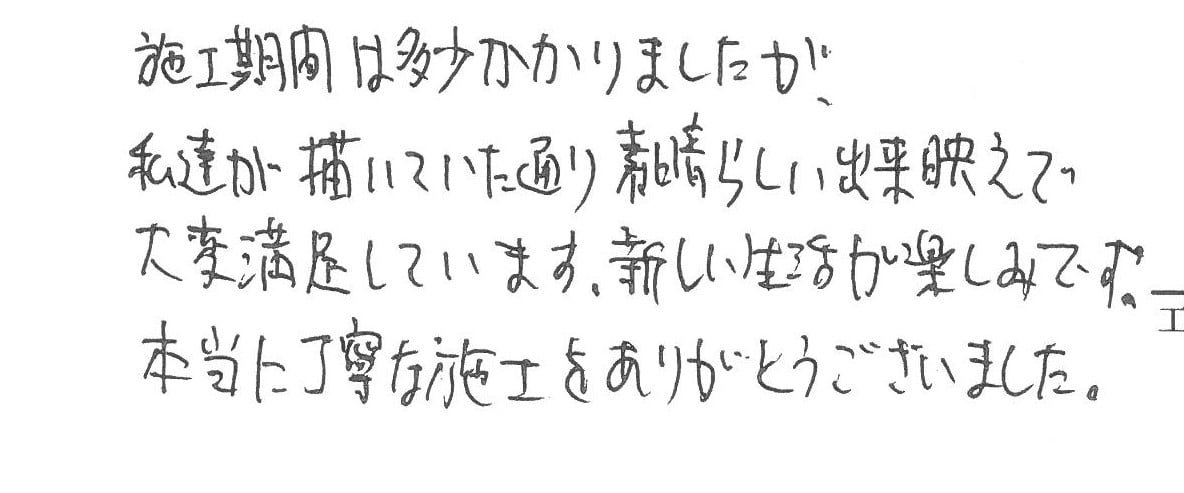 施工期間は多少かかりましたが、
私達が描いていた通り素晴らしい出来映えで
大変満足しています。新しい生活が楽しみです。
本当に丁寧な施工をありがとうございました。